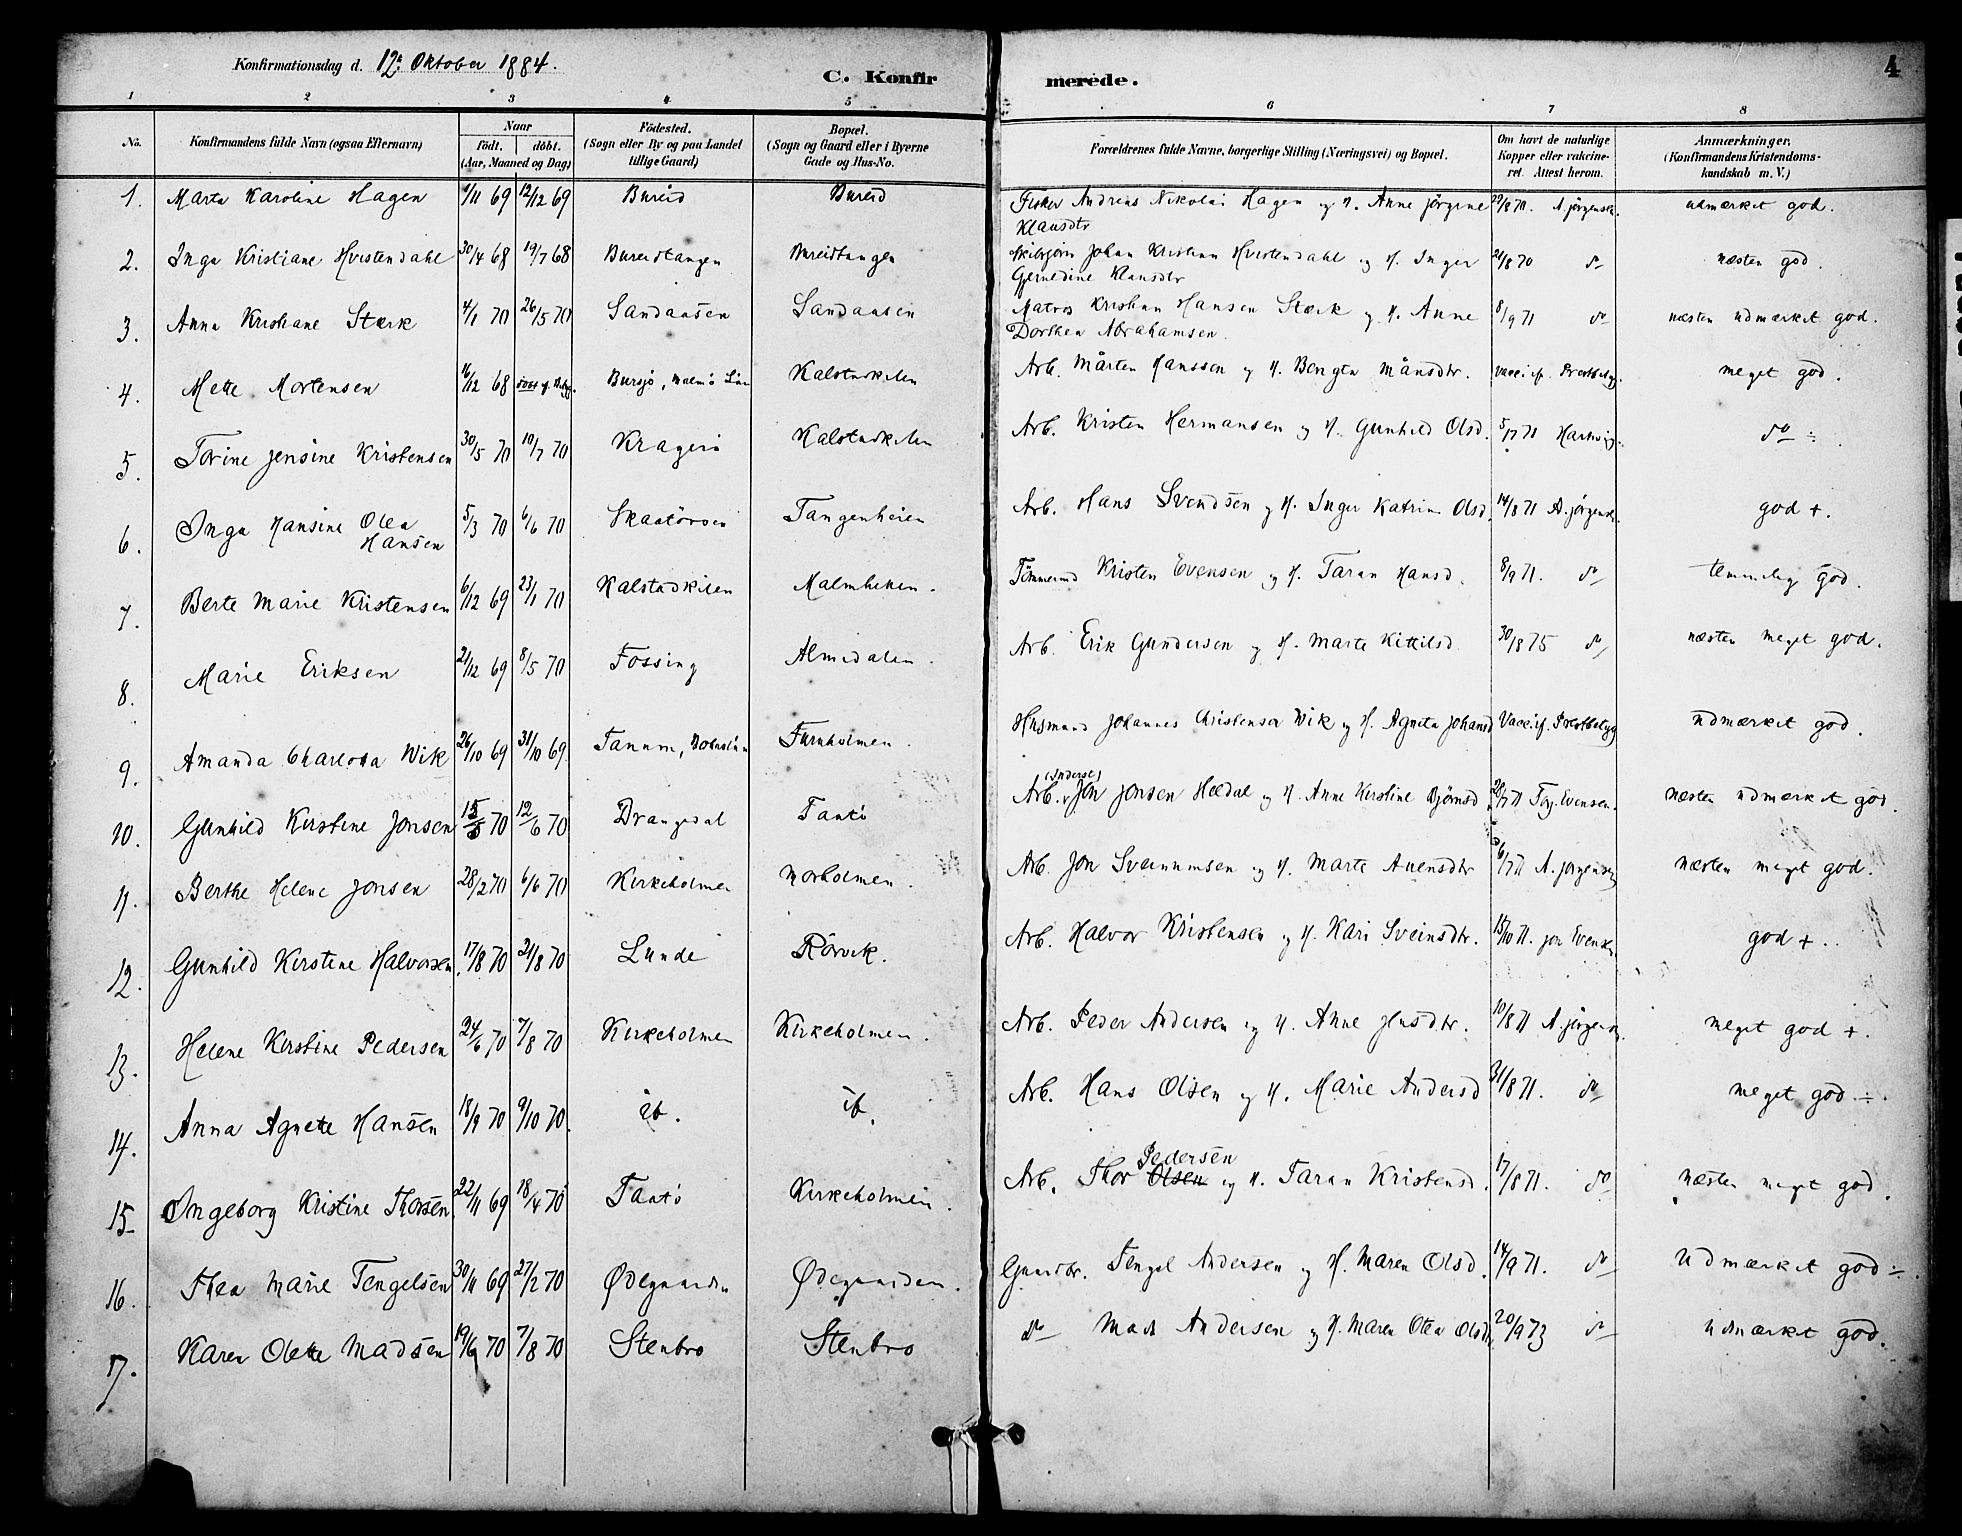 Konfirmationsdag d. 12te Oktober 1884.
C. Konfirmerede.
4
1 2 3 4 5 6 7 8
No. Konfirmandens fulde Navn (ogsaa Efternavn) Naar födt. döbt. (Aar, Maaned og Dag) Födested. (Sogn eller By og paa Landet tillige Gaard) Bopæl. (Sogn og Gaard eller i Byerne Gade og Hus-No. Forældrenes fulde Navne, borgerlige Stilling (Næringsvei) og Bopæl. Om havt de naturlige Kopper eller vakcineret. Attest herom. Anmærkninger. (Konfirmandens Kristendomskundskab m. V.)
1. Marta Karoline Hagen 1/11 69 12/12 69 Bureid Bureid Fisker Andreas Nikolai Hagen og H. Anne Jörgine Klausdtr 29/8 70. A. Jörgensen. udmærket god.
2. Inga Kristiane Hvistendahl 30/4 68 19/7 68 Bureidtangen Bureidtangen Johan Kristian Hvistendahl og H. Inger Klausdtr 24/8 70 do næsten god.
3. Anna Kristiane Stærk 4/1 70 26/5 70 Sandaasen Sandaasen Matros Kristian Hansen Stærk og H. Anne Dorthea Abrahamsen. 8/9 71 do næsten udmærket god.
4. Mette Mortensen 16/12 68 Bursjö, Malmö Län Kalstadkilen Arb. Mårten Hansson og H. Bengta Månsdtr. Vacc. if. Prestbetyg. meget god.
5. Torine Jensine Kristensen 30/5 70 10/7 70 Kragerö Kalstadkilen Arb. Kristen Hermansen og H. Gunhild Olsd. 5/7 71 do ÷.
6. Inga Hansine Olea Hansen 5/3 70 6/6 70 Skaatöroen Tangenheien Arb. Hans Svendsen og H. Inger Katrine Olsd. 14/8 71 A. Jörgensen. god +.
7. Berte Marie Kristensen 6/12 69 23/1 70 Kalstadkilen Malmhellen. Tömmermd Kristen Evensen og H. Taran Hansd. 8/9 71. do temmelig god.
8. Marie Eriksen 21/12 69 8/5 70 Fossing Almedalen. Arb. Erik Gundersen og H. Marte Kittilsd. 30/8 75 do næsten meget god.
9. Amanda Charlotta Wik 26/10 69 31/10 69. Tanum, Bohuslän Furuholmen. Husmand Johannes Christensen Wik og H. Agneta Johansd Vacc. if. Prestbetyg udmærket god.
10. Gunhild Kirstine Jonsen 15/5 70 12/6 70 Drangedal Taatö Arb. Jon Jonsen Heldal og H. Anne Kirstine Björnsd 2/7 71 Torj. Evensen. næsten udmærket god.
11. Berthe Helene Jonsen 28/2 70 6/6 70 Kirkeholmen Norholmen. Arb. Jon Sveinumsen og H. Marte Auensdtr 6/7 71 A. Jörgensen næsten meget god.
12. Gunhild Kirstine Halvorsen. 17/8 70 21/8 70 Lunde Rörvik. Arb. Halvor Kristensen og H. Kari Sveinsdtr. 15/10 71. Jon Evensen god +.
13. Helene Kirstine Pedersen 24/6 70 7/8 70 Kirkeholmen Kirkeholmen. Arb. Peder Andersen og H. Anne Jensdtr. 10/8 71 A. Jörgensen. meget god +.
14. Anna Agnette Hansen 18/9 70 9/10 70. ib. ib. Arb. Hans Olsen og H. Marie Andersd 31/8 71. do meget god ÷.
15. Ingeborg Kristine Thorsen 22/11 69 18/4 70 Taatö Kirkeholmen. Arb. Thor Olsen Pedersen og H. Taran Kristensd. 17/8 71. do næsten meget god.
16. Thea Marie Tengelsen 30/11 69 27/2 70 Ødegaarden Ødegaarden. Gaardbr. Tengel Andersen og H. Maren Olsd. 14/9 71. do Udmærket god ÷.
17. Karen Olette Madsen 19/6 70 7/8 70 Stenbro Stenbro do Mads Andersen og H. Maren Olea Olsdtr 20/9 73 do udmærket god.